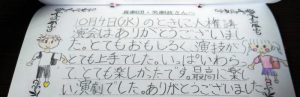 長劇団・笑劇派さんへ
10月9日(水)のときに人権講
演会はありがとうございまし
た。とてもおもしろく、演技がと
ても上手でした。いっぱいわらっ
て、とても楽しかったです。最高に楽し
い演劇でした。ありがとうございました。